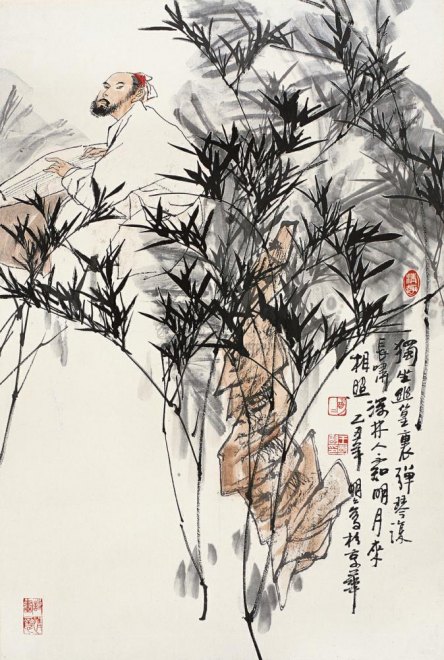 獨坐幽篁裏彈琴復
長嘯深林人不知明月來
相照 丑年 明明寫於京華